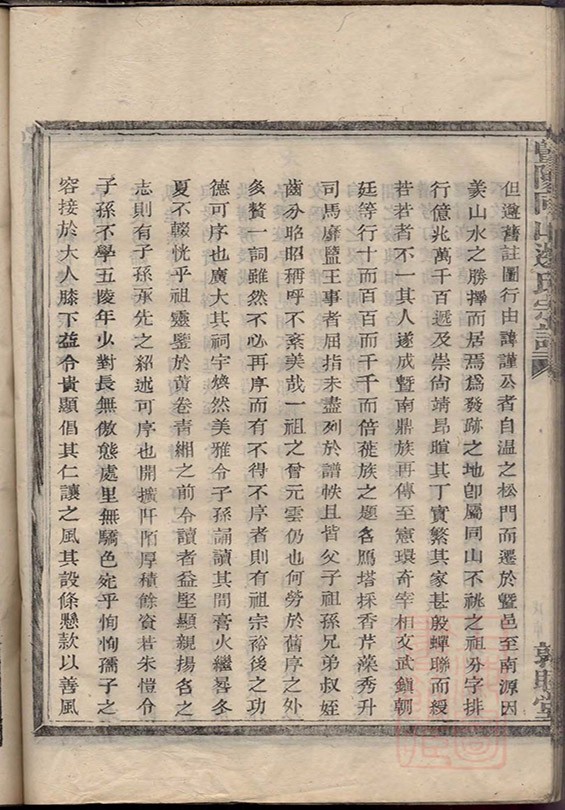 但遵舊註圖行由諱謹公者自温之松門而遷於暨邑至南源因
羙山水之勝擇而居焉爲發跡之地卽屬同山不祧之祖分字排
行億兆萬千百遞及崇尙靖昂暄其丁實繁其家甚殷蟬聯而綬
若若者不一其人遂成暨南鼎族再傳至憲環奇宰相文武鎮朝
廷等行十而百百而千千而倍蓰族之題名鴈塔採香芹藻秀升
司馬靡盬王事者屈指未盡列於譜帙且皆父子祖孫兄弟叔姪
齒分昭昭稱呼不紊美哉一祖之曾元雲仍也何勞於舊序之外
多贅一詞雖然不必再序而有不得不序者則有祖宗裕後之功
德可序也廣大其祠宇煥然美雅令子孫誦讀其間膏火繼晷冬
夏不輟恍乎祖靈鑒於黄卷青緗之前令讀者益堅顯親揚名之
志則有子孫承先之紹述可序也開擴阡陌厚積餘資若朱愷令
子孫不學五陵年少對長無傲態處里無驕色宛乎恂恂孺子之
容接於大人膝下益令貴顯倡其仁讓之風其設條懸款以善風
暨陽同山邊氏宗譜
敦睦堂